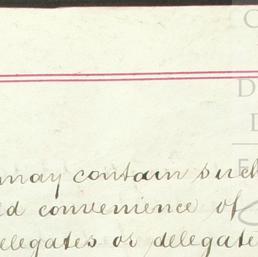 may contain such
ed convenience of
delegates or delegate